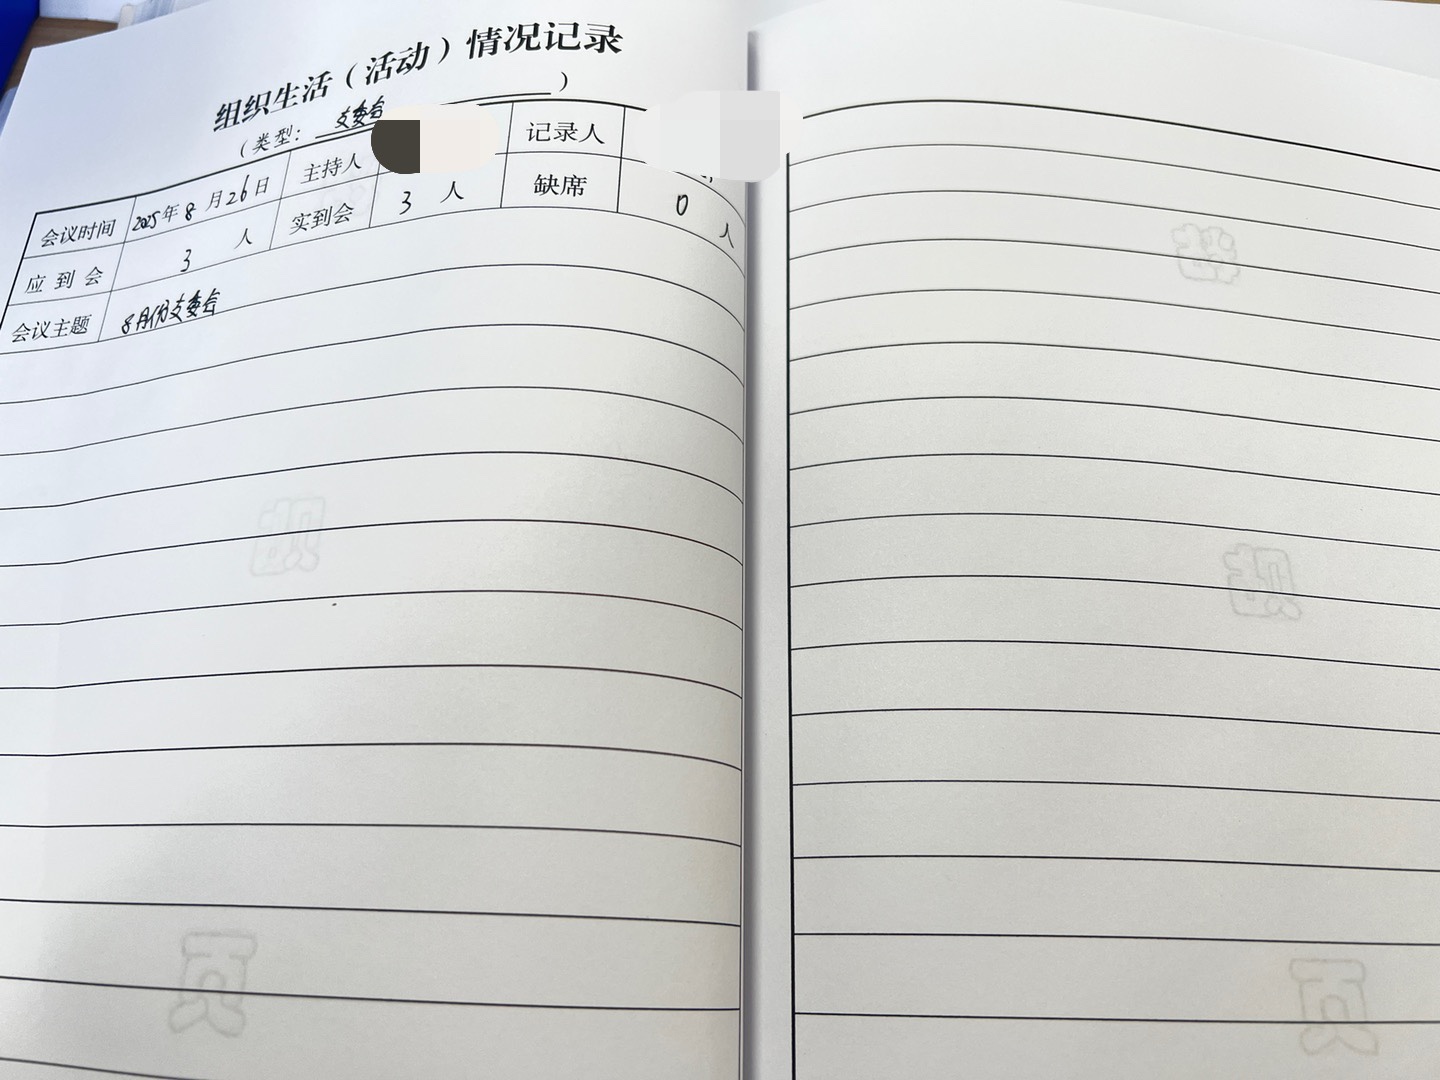 组织生活（活动）情况记录
（类型：支委会）
会议时间 2025年8月26日 主持人 记录人
应到会 3人 实到会 3人 缺席 0人
会议主题 8月份支委会
页
页